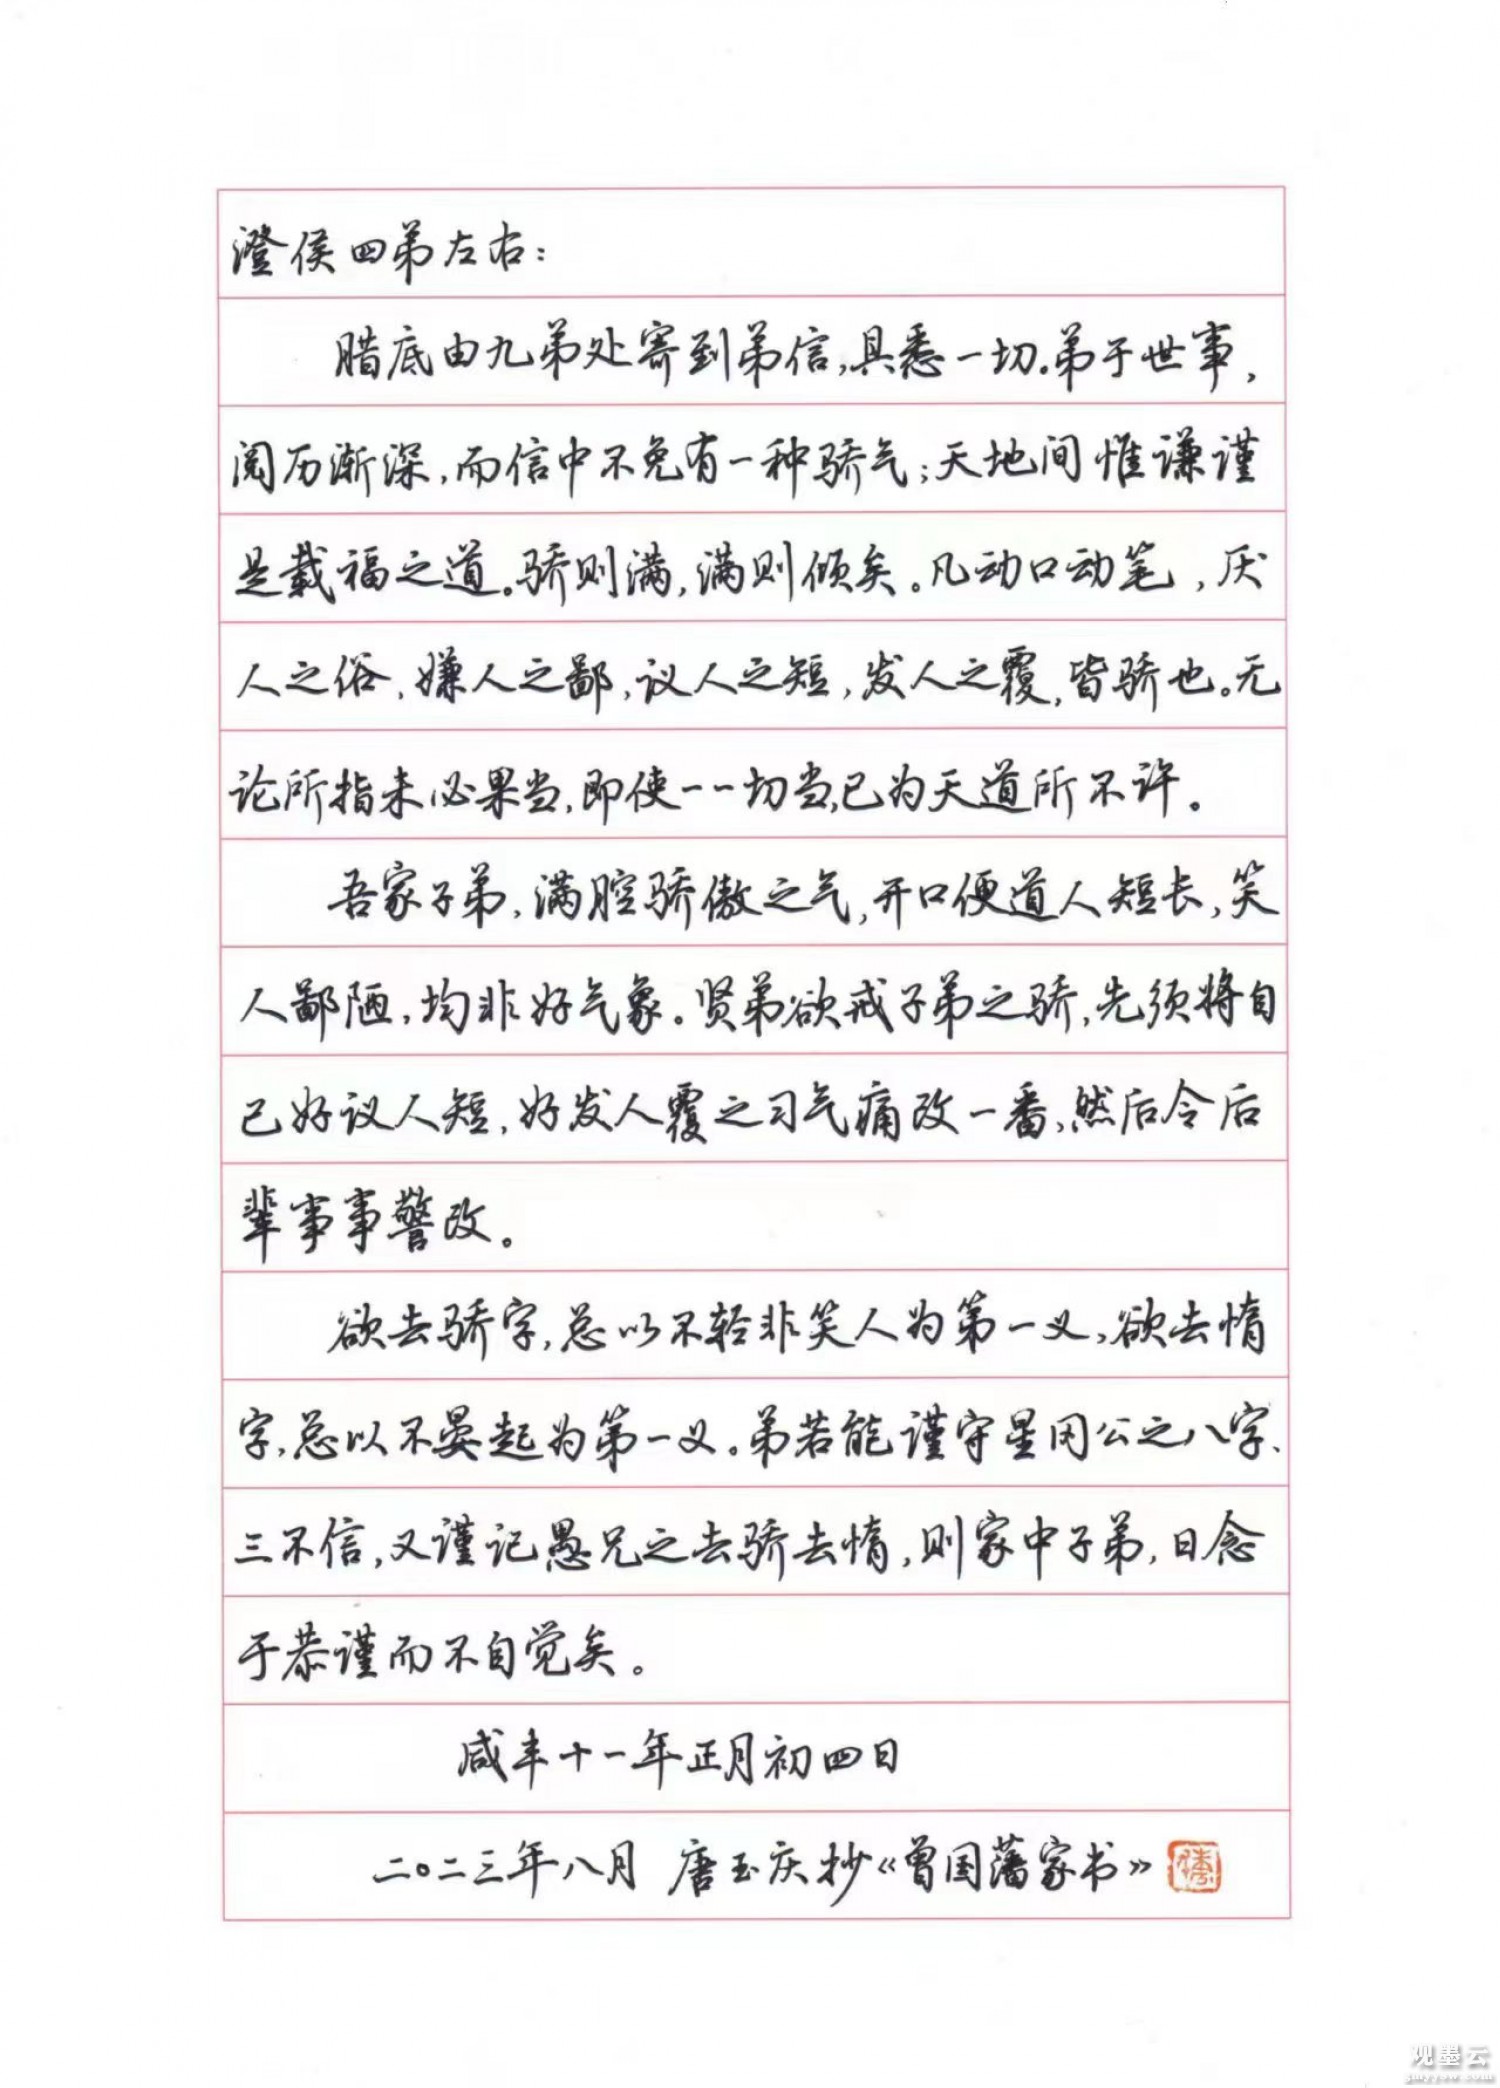 澄侯四弟左右：
腊底由九弟处寄到弟信，具悉一切。弟于世事，
阅历渐深，而信中不免有一种骄气；天地间惟谦谨
是载福之道。骄则满，满则倾矣。凡动口动笔，厌
人之俗，嫌人之鄙，议人之短，发人之覆，皆骄也。无
论所指未必果当，即使一一切当，已为天道所不许。
吾家子弟，满腔骄傲之气，开口便道人短长，笑
人鄙陋，均非好气象。贤弟欲戒子弟之骄，先须将自
己好议人短，好发人覆之习气痛改一番，然后令后
辈事事警改。
欲去骄字，总以不轻非笑人为第一义，欲去惰
字，总以不晏起为第一义。弟若能谨守星冈公之八字、
三不信，又谨记愚兄之去骄去惰，则家中子弟，日念
于恭谨而不自觉矣。
咸丰十一年正月初四日
二〇二三年八月 唐玉庆抄《曾国藩家书》
观墨云
gmyyow.com